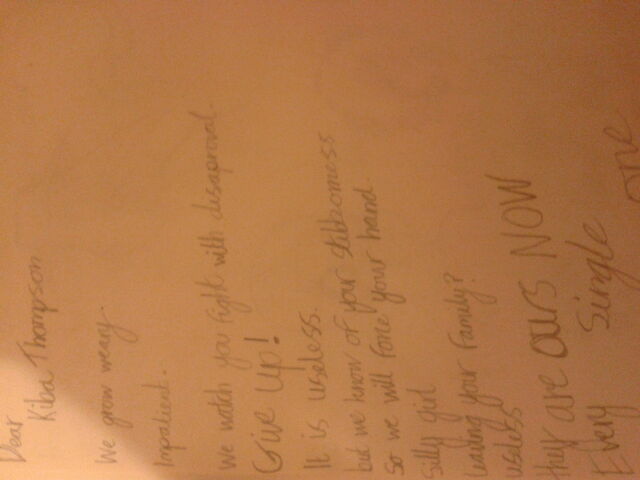 Dear
Kiba Thompson
We grow weary.
Impatient.
We watch you fight with disaproval.
Give up!
It is useless.
but we know of your stibborness
so we will force your hand.
Silly girl
leaving your Family?
useless
they are OURS NOW
Every single one